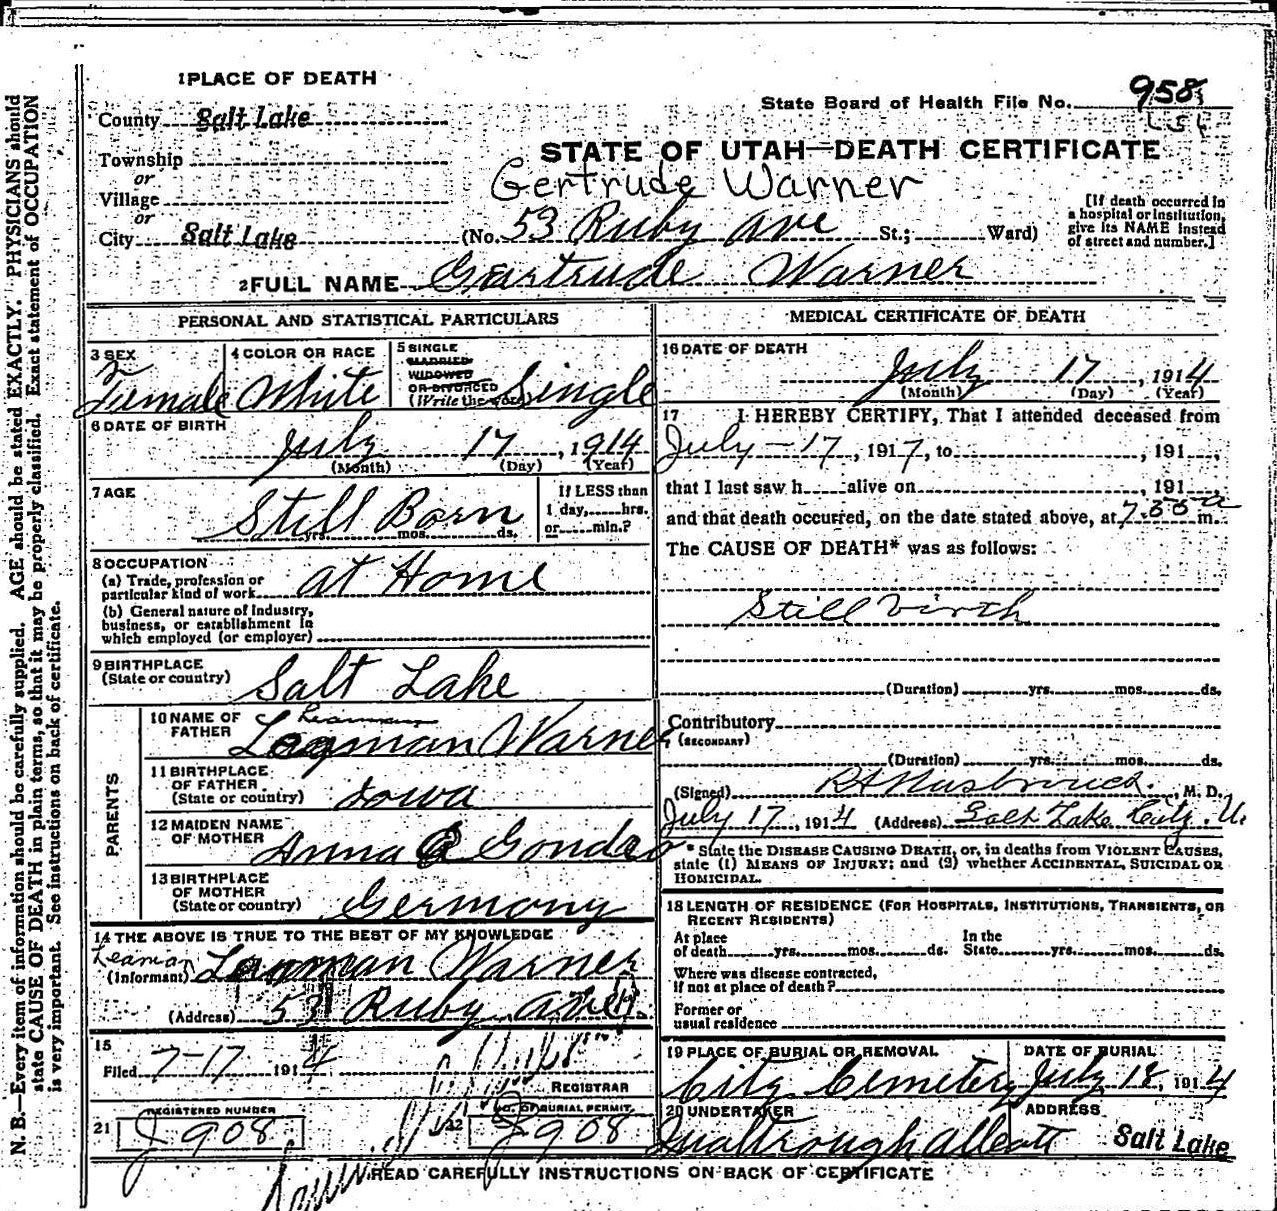 1 PLACE OF DEATH
County Salt Lake
State Board of Health File No. 958
Township
or
Village
or
City Salt Lake
STATE OF UTAH—DEATH CERTIFICATE
Gertrude Warner
(No. 53 Ruby Ave St.; Ward)
[If death occurred in
a hospital or institution,
give its NAME instead
of street and number.]
2 FULL NAME Gertrude Warner
PERSONAL AND STATISTICAL PARTICULARS
3 SEX
2
Female
4 COLOR OR RACE
White
5 SINGLE
MARRIED
WIDOWED
OR DIVORCED
(Write the word) Single
6 DATE OF BIRTH
July 17, 1914
(Month) (Day) (Year)
7 AGE
Still Born
yrs. mos. ds.
If LESS than
1 day, hrs.
or min.?
8 OCCUPATION
(a) Trade, profession or
particular kind of work at Home
(b) General nature of Industry,
business, or establishment in
which employed (or employer)
9 BIRTHPLACE
(State or country) Salt Lake
PARENTS
10 NAME OF
FATHER
Leaman
Warner
11 BIRTHPLACE
OF FATHER
(State or country) Iowa
12 MAIDEN NAME
OF MOTHER
Anna
13 BIRTHPLACE
OF MOTHER
(State or country) Germony
14 THE ABOVE IS TRUE TO THE BEST OF MY KNOWLEDGE
Leaman
(Informant) Warner
(Address) 53 Ruby Ave
15
Filed 7-17 1914
REGISTRAR
REGISTERED NUMBER
21 J 908
NO. OF BURIAL PERMIT
22 J 908
MEDICAL CERTIFICATE OF DEATH
16 DATE OF DEATH
July 17, 1914
(Month) (Day) (Year)
17 I HEREBY CERTIFY, That I attended deceased from
July - 17, 1917, to , 191 ,
that I last saw h alive on , 191
and that death occurred, on the date stated above, at m.
The CAUSE OF DEATH* was as follows:
Still birth
(Duration) yrs. mos. ds.
Contributory
(SECONDARY)
(Duration) yrs. mos. ds.
(Signed) , M. D.
July 17, 1914 (Address) Salt Lake City. U.
* State the DISEASE CAUSING DEATH, or, in deaths from VIOLENT CAUSES,
state (1) MEANS OF INJURY; and (2) whether ACCIDENTAL, SUICIDAL OR
HOMICIDAL.
18 LENGTH OF RESIDENCE (FOR HOSPITALS, INSTITUTIONS, TRANSIENTS, OR
RECENT RESIDENTS)
At place
of death yrs. mos. ds.
In the
State yrs. mos. ds.
Where was disease contracted,
if not at place of death?
Former or
usual residence
19 PLACE OF BURIAL OR REMOVAL
City Cemetery
DATE OF BURIAL
July 18, 1914
20 UNDERTAKER
ADDRESS
Salt Lake
READ CAREFULLY INSTRUCTIONS ON BACK OF CERTIFICATE
N. B.—Every item of information should be carefully supplied. AGE should be stated EXACTLY. PHYSICIANS should
state CAUSE OF DEATH in plain terms, so that it may be properly classified. Exact statement of OCCUPATION
is very important. See instructions on back of certificate.